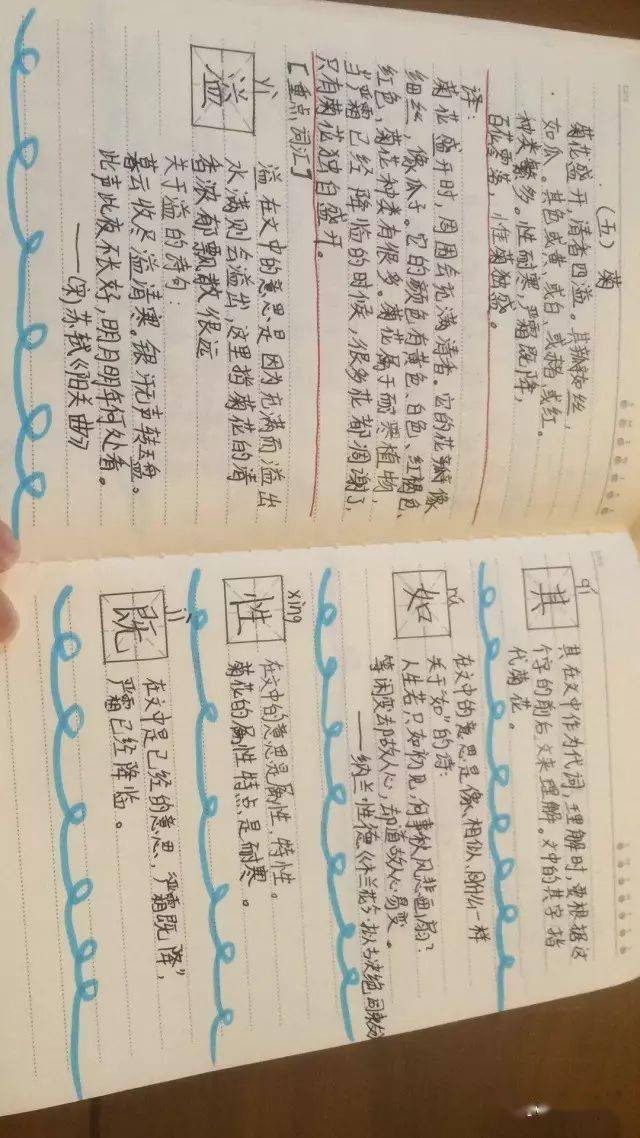 (五) 菊
菊花盛开，清香四溢。其瓣如丝，
如爪。其色或黄、或白、或赭、或红。
种类繁多。性耐寒，严霜既降，
百花零落，惟菊独盛。
译：
菊花盛开时，周围会充满清香。它的花瓣像
细丝，像爪子。它的颜色有黄色、白色、红褐色、
红色，菊花种类有很多。菊花属于耐寒植物，
当严霜已经降临的时候，很多花都凋谢了，
只有菊花独自盛开。
【重点词汇】
yì
溢
溢在文中的意思是因为充满而溢出
水满则会溢出，这里指菊花的清
香浓郁飘散很远
关于溢的诗句：
暮云收尽溢清寒。银汉无声转玉盘。
此声此夜不长好，明月明年何处看。
——(宋)苏轼《阳关曲》
qí
其
其在文中作为代词，理解时，要根据这
个字的前后文来理解。文中的其字指
代菊花。
rú
如
在文中的意思是像、相似、同什么一样
关于“如”的诗：
人生若只如初见，何事秋风悲画扇？
等闲变却故人心，却道故人心易变。
——纳兰性德《木兰花令·拟古决绝词柬友》
xìng
性
在文中的意思是属性，特性。
菊花的属性特点是耐寒。
jì
既
在文中是已经的意思，“严霜既降”，
严霜已经降临。